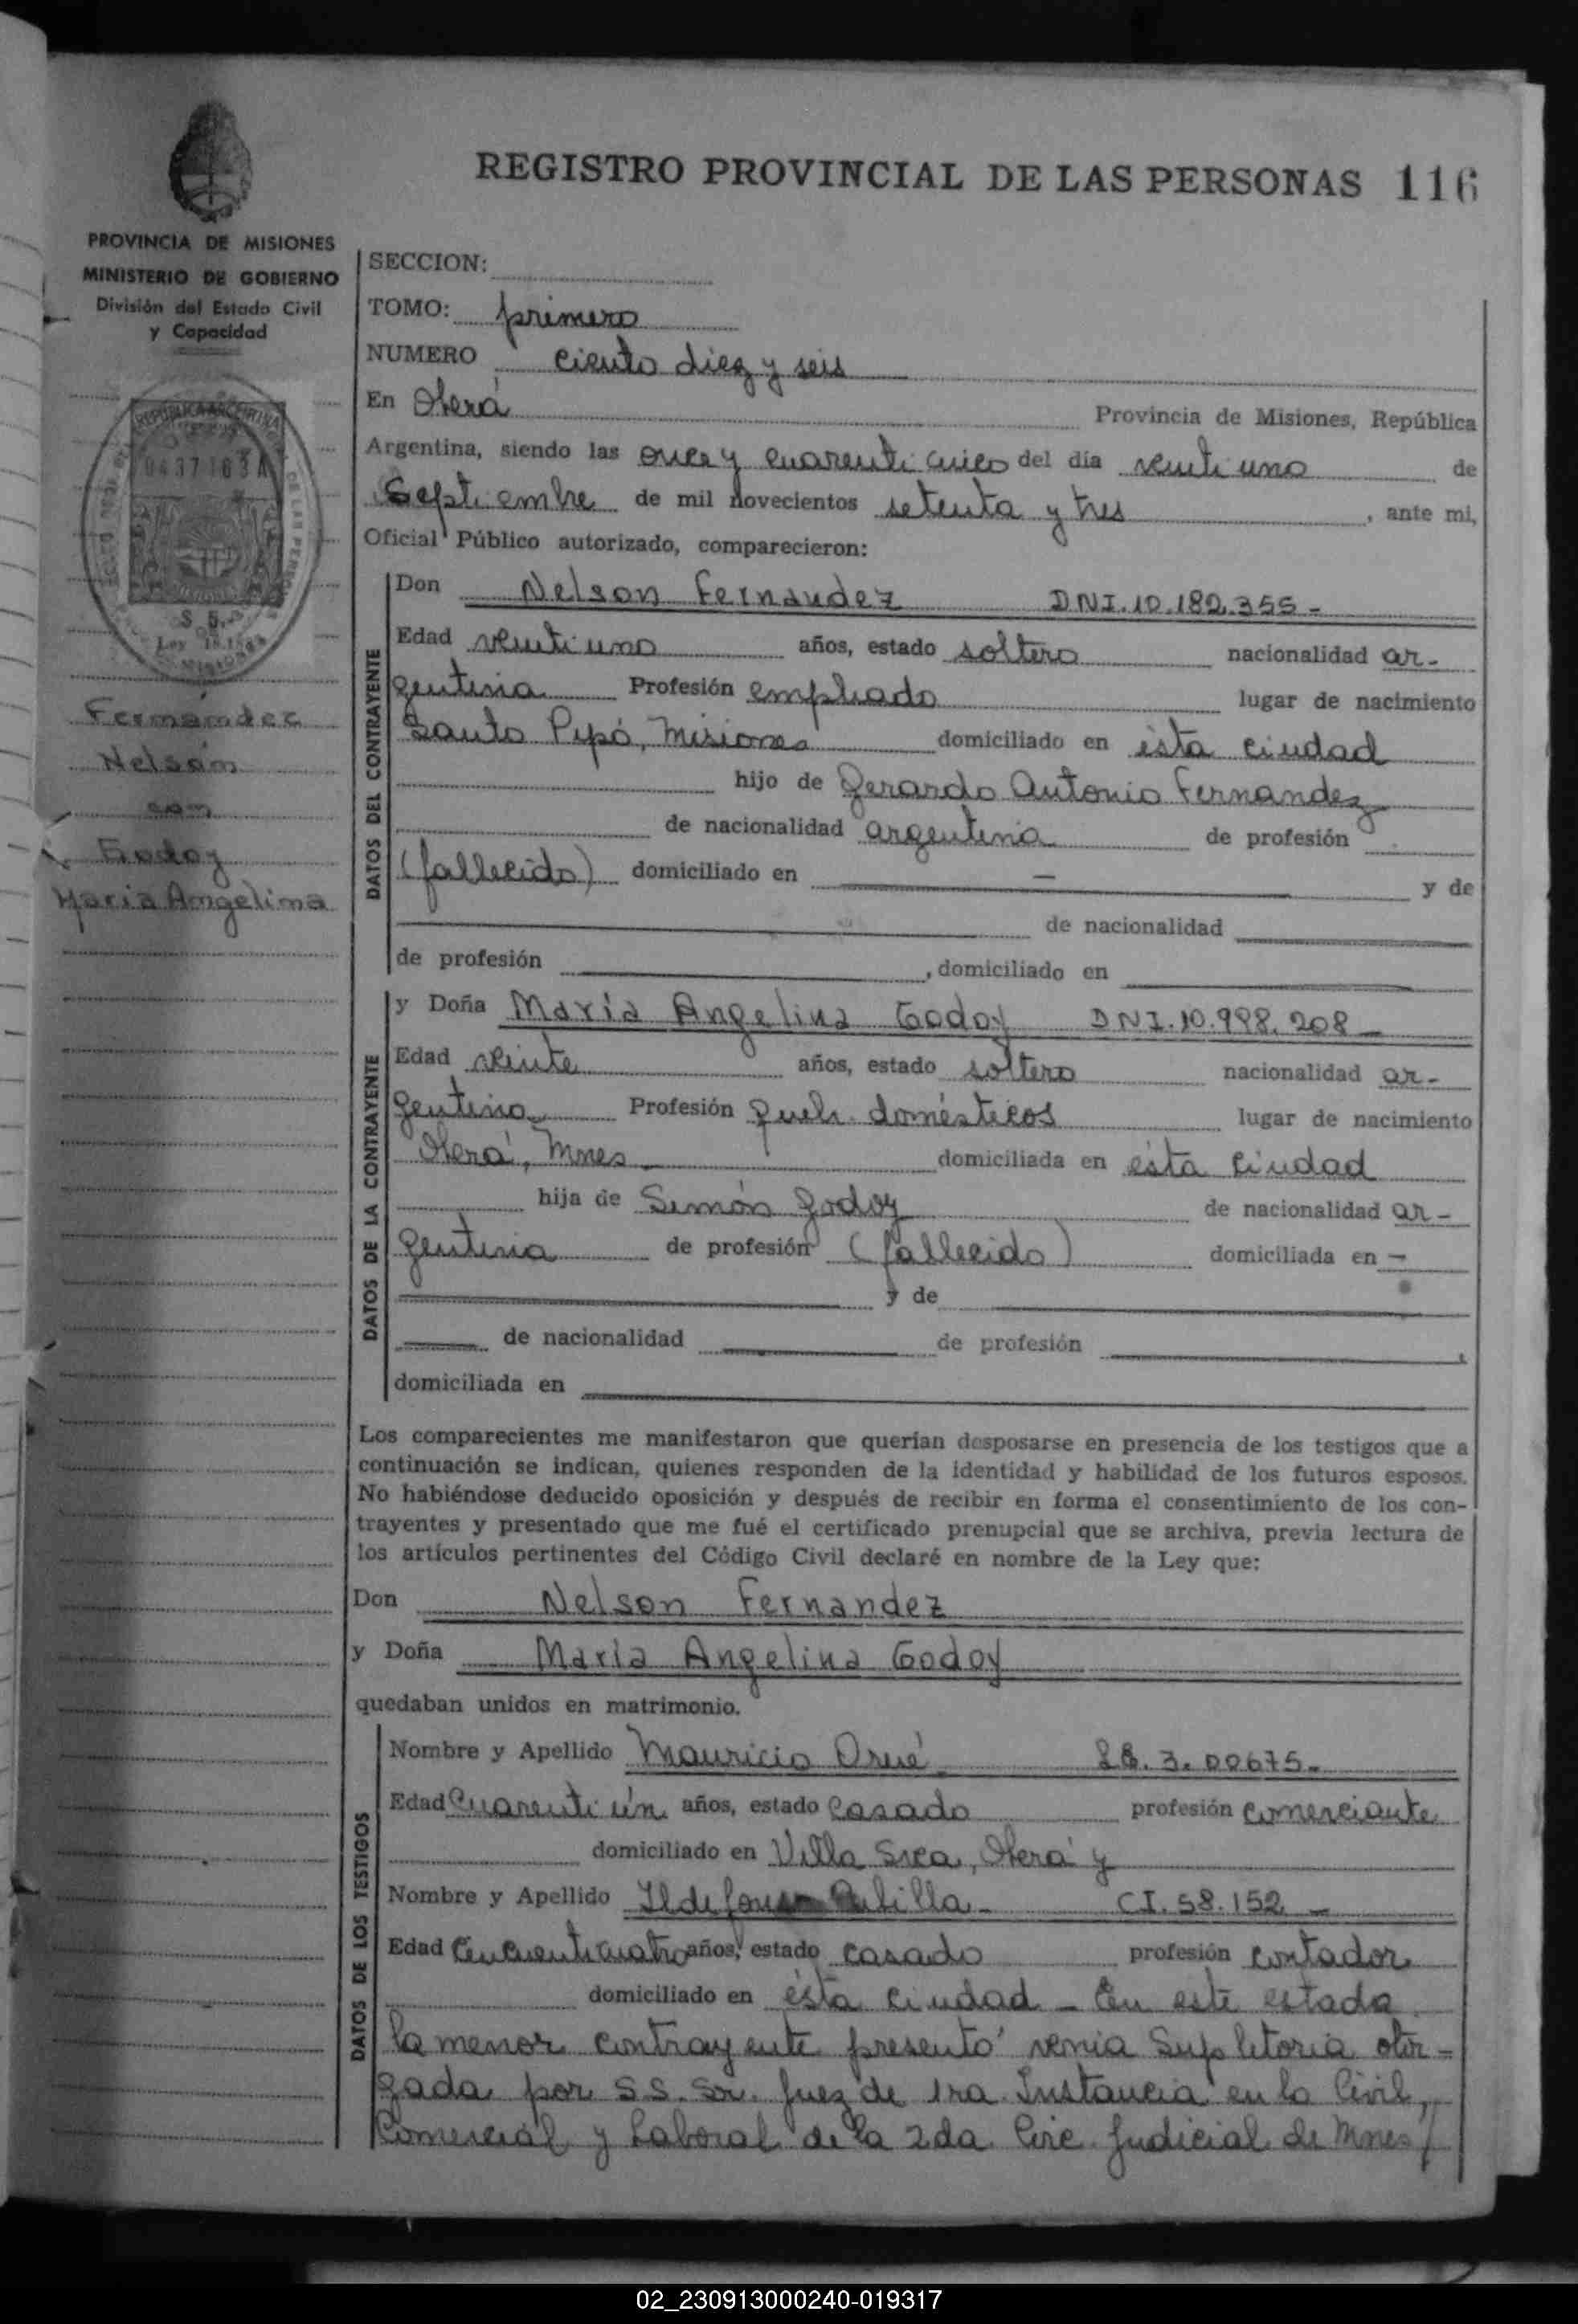 REGISTRO PROVINCIAL DE LAS PERSONAS 116
PROVINCIA DE MISIONES
MINISTERIO DE GOBIERNO
División del Estado Civil
y Capacidad
REPUBLICA ARGENTINA
0437163 A
$ 5.-
Ley 18.
Fernández
Nelson
con
Godoy
Maria Angelina
SECCION:
TOMO: primero
NUMERO ciento diez y seis
En Oberá Provincia de Misiones, República
Argentina, siendo las once y cuarenti cinco del día venti uno de
Septiembre de mil novecientos setenta y tres, ante mi,
Oficial Público autorizado, comparecieron:
DATOS DEL CONTRAYENTE
Don Nelson Fernandez DNI.10.182.355-
Edad venti uno años, estado soltero nacionalidad ar-
gentina Profesión empleado lugar de nacimiento
Santo Pipó, Misiones domiciliado en ésta ciudad
hijo de Gerardo Antonio Fernandez
de nacionalidad argentina de profesión
(fallecido) domiciliado en — y de
de nacionalidad
de profesión , domiciliado en
DATOS DE LA CONTRAYENTE
y Doña María Angelina Godoy DNI.10.998.208-
Edad veinte años, estado soltera nacionalidad ar-
gentina Profesión queh. domésticos lugar de nacimiento
Oberá, Mnes domiciliada en ésta ciudad
hija de Simón Godoy de nacionalidad ar-
gentina de profesión (fallecido) domiciliada en -
y de
de nacionalidad de profesión ,
domiciliada en
Los comparecientes me manifestaron que querían desposarse en presencia de los testigos que a
continuación se indican, quienes responden de la identidad y habilidad de los futuros esposos.
No habiéndose deducido oposición y después de recibir en forma el consentimiento de los con-
trayentes y presentado que me fué el certificado prenupcial que se archiva, previa lectura de
los artículos pertinentes del Código Civil declaré en nombre de la Ley que:
Don Nelson Fernandez
y Doña María Angelina Godoy
quedaban unidos en matrimonio.
DATOS DE LOS TESTIGOS
Nombre y Apellido Mauricio Orué 3.00675-
Edad Cuarenti ún años, estado casado profesión comerciante
domiciliado en Villa Svea, Oberá y
Nombre y Apellido Ildefonso CI.58.152-
Edad Cincuenti cuatro años, estado casado profesión contador
domiciliado en ésta ciudad - En este estado
la menor contrayente presentó venia Supletoria otor-
gada por S.S. Sr. Juez de 1ra. Instancia en lo Civil,
Comercial y Laboral de la 2da. Circ. Judicial de Mnes/
02_230913000240-019317